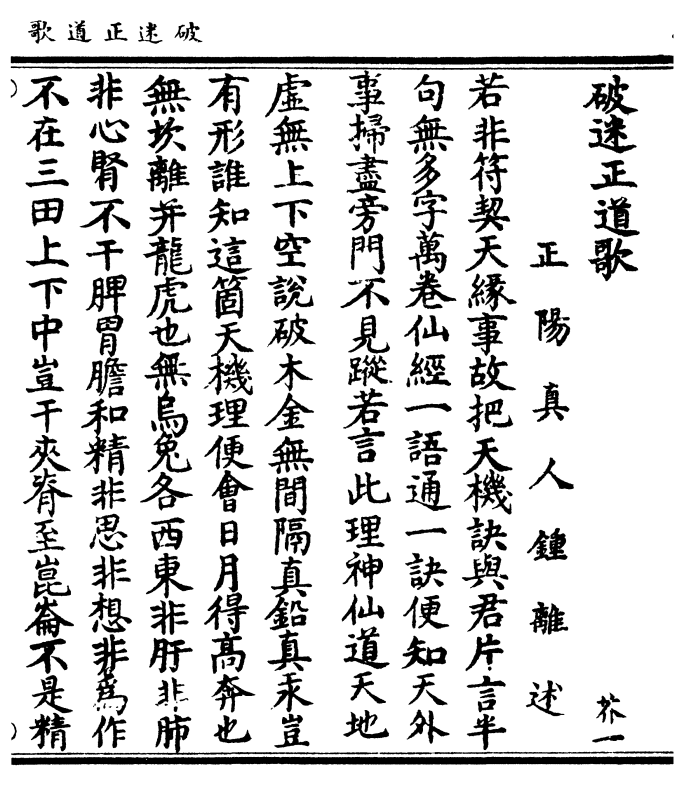 破迷正道歌
破迷正道歌　芥一
正陽真人鍾離述
若非符契天緣事故把天機訣與君片言半
句無多字萬卷仙經一語通一訣便知天外
事掃盡旁門不見蹤若言此理神仙道天地
虛無上下空說破木金無間隔真鉛真汞豈
有形誰知這箇天機理便會日月得高奔也
無坎離并龍虎也無烏兔各西東非肝非肺
非心腎不干脾胃膽和精非思非想非爲作
不在三田上下中豈干夾脊至崑崙不是精